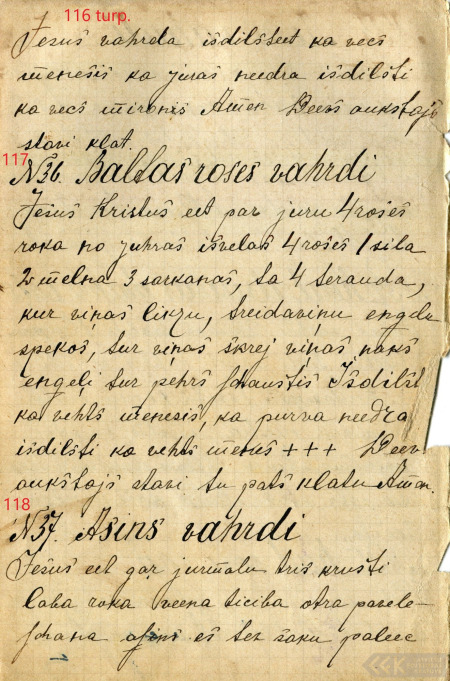 116 turp.
Jesus vahrda isdilsteet ka vecs
menesis ka juras needra isdilsti
ka vecs mironis Amen Deevs aukstajs
stavi klat.
117
N36. Baltas roses vahrdi
Jesus Kristus eet par juru 4 roses
roka no juhras isvelas 4 roses 1 sila
2 melna 3 sarkanas, ta 4 seranda,
kur viņas likzu, treidaviņu engelu
spekos, tur viņas skrej viņas naks
engeļi tur pehrs schaustis Isdilst
ka vehts menesis, ka purva needra
isdilsti ka vehts menes +++ Deevs
aukstajs stavi tu pats klatu Amen.
118
N37. Asins vahrdi
Jesus eet gar jurmalu tris krusti
laba roka veena ticiba otra pavele-
schana asins es tev saku paleec